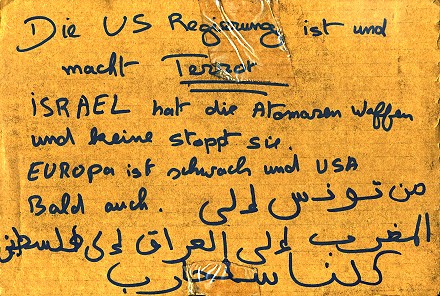 Die US Regierung ist und
macht Terror
iSRAEL hat die Atomaren Waffen
und keine stoppt sie.
EUROPa ist schwach und USA
Bald auch. من تونس إلى
المغرب إلى العراق إلى فلسطين
كلنا سنحارب